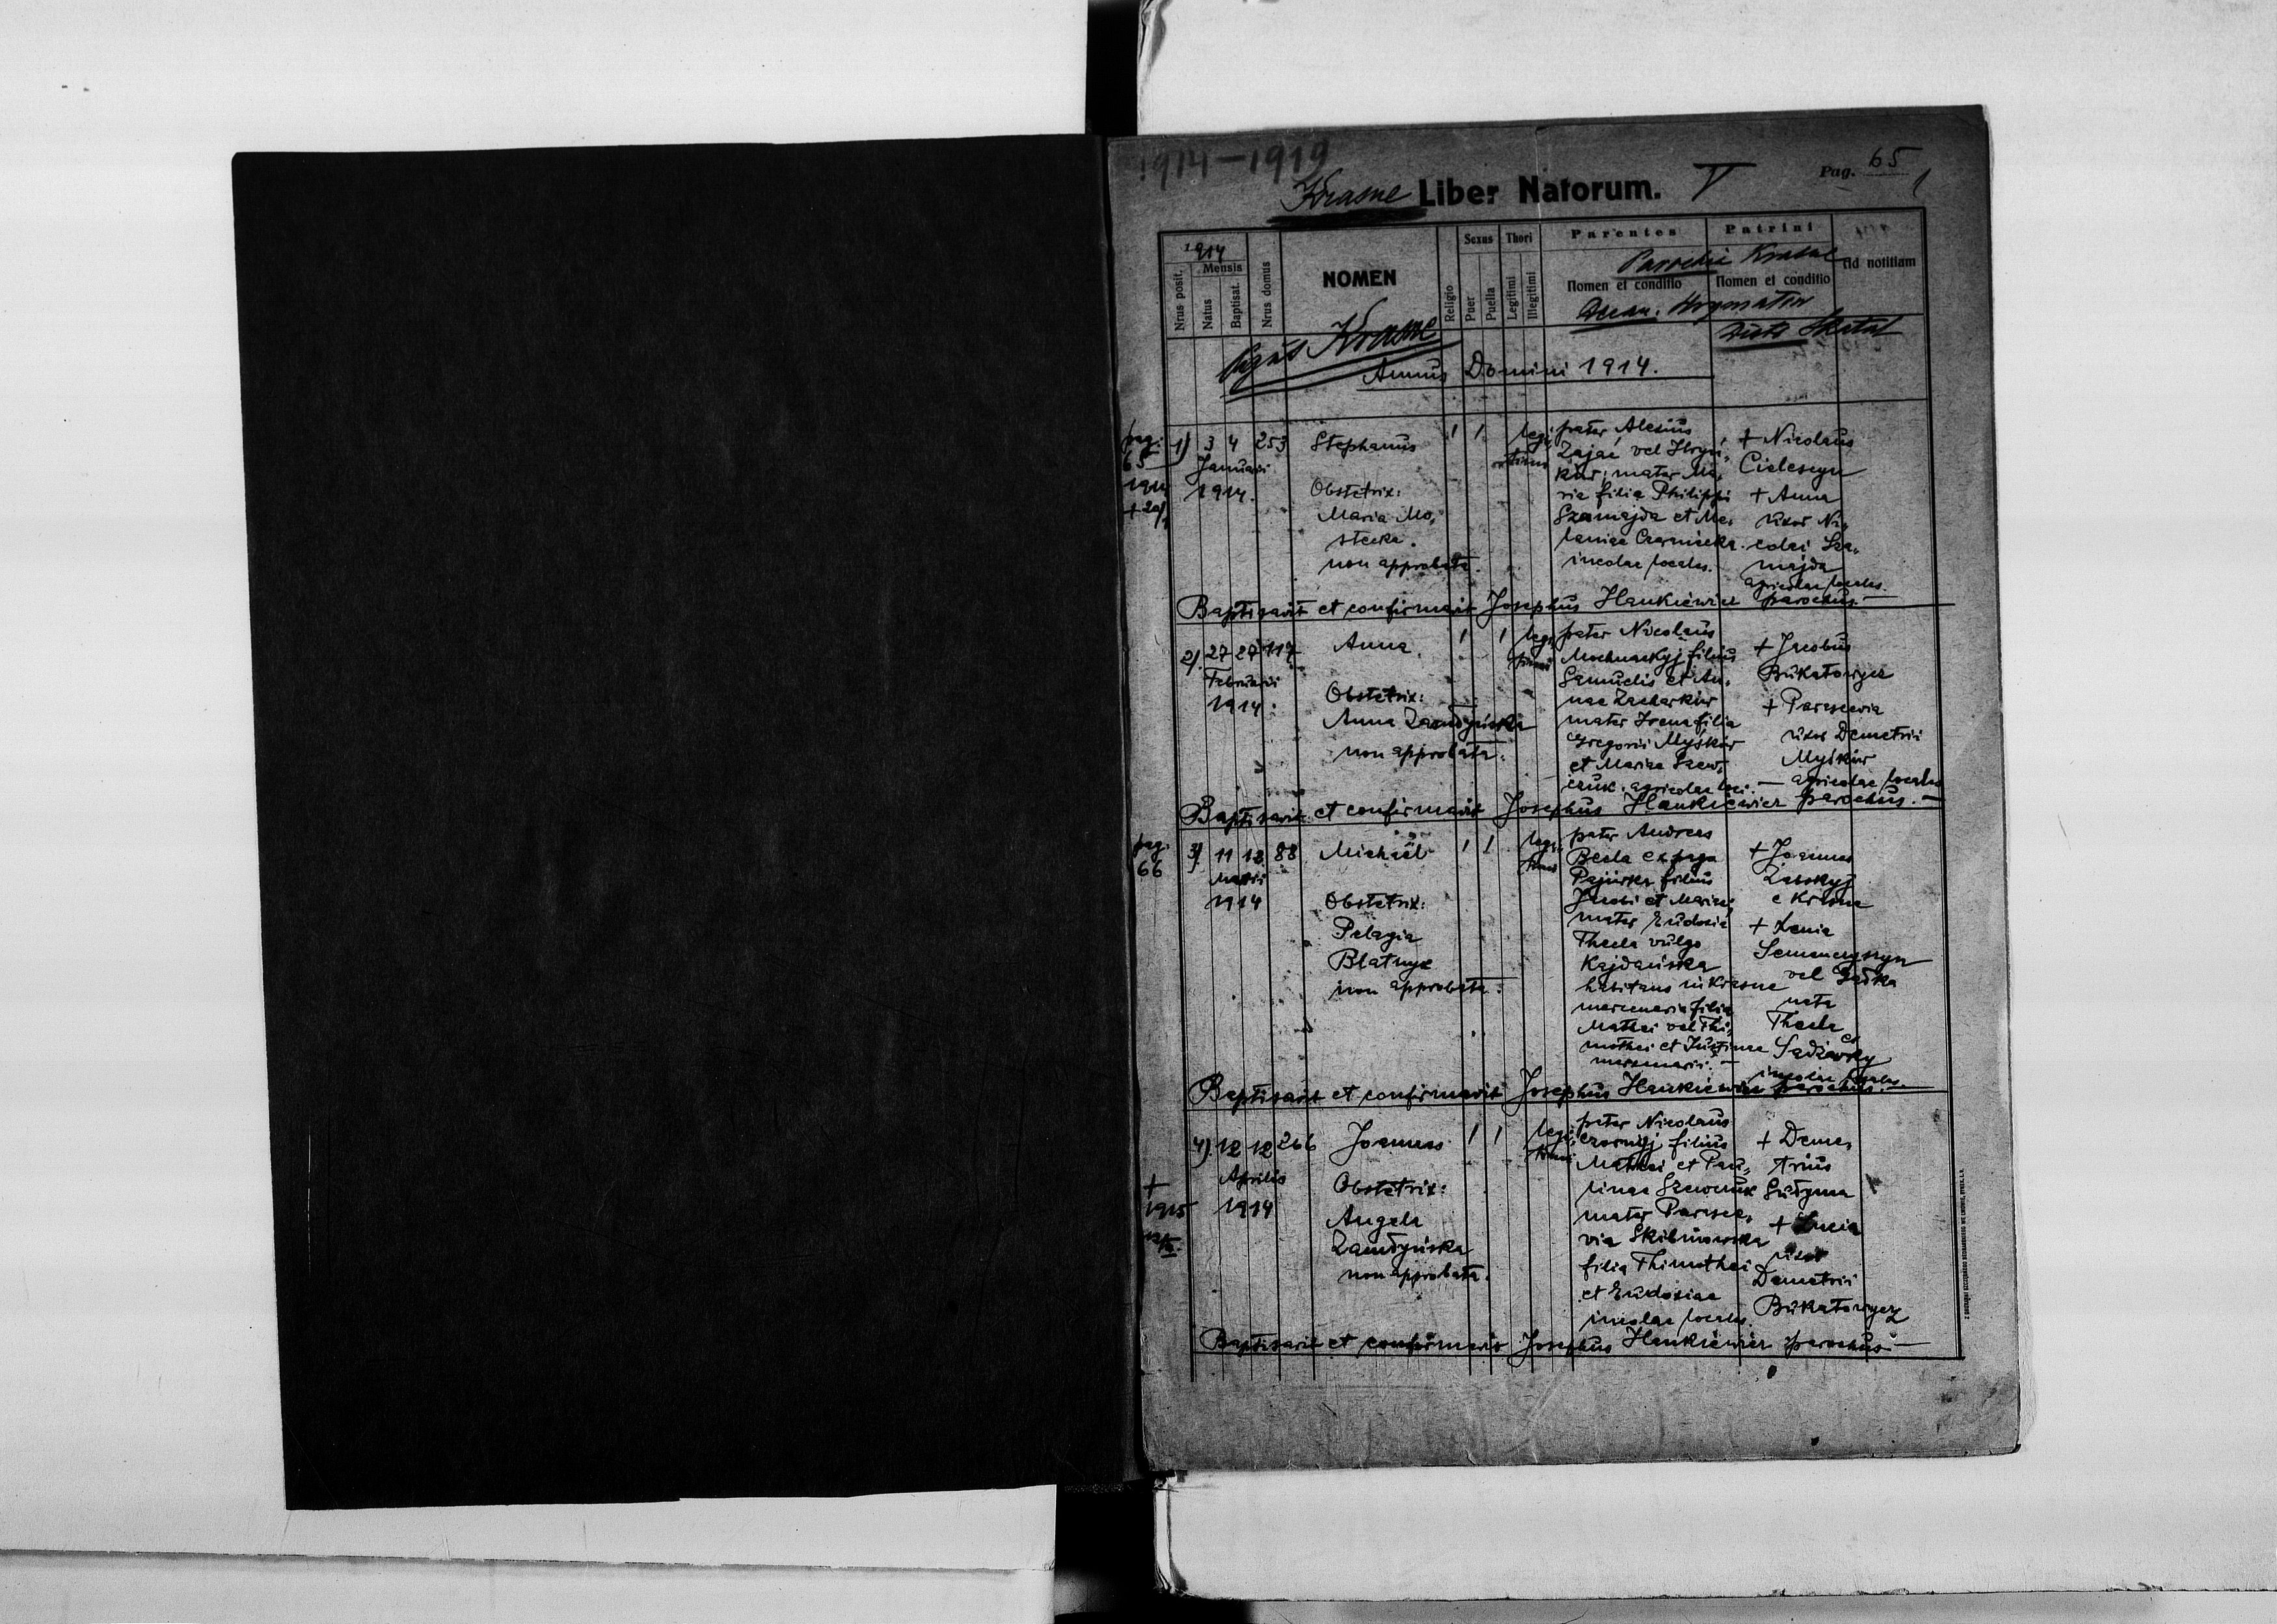 1914-1919
Krasne Liber Natorum. V Pag. 65
1914
Mensis
Nrus posit.
Natus
Baptisat.
Nrus domus
NOMEN
Religio
Sexus
Puer
Puella
Thori
Legitimi
Illegitimi
Parentes
Nomen et conditio
Patrini
Nomen et conditio
Ad notitiam
Parochia Krasne
Decan.
Skałat
Pagus Krasne
Annus Domini 1914.
pag. 65
1914
1) 3 4 253
Januarii
1914.
Stephanus
Obstetrix:
Maria Mo,
stecka.
non approbata.
1 1
legi,
timus
pater Alexius
Zając vel Hryn,
kiw; mater Ma,
ria filia Philippi
Szamajda et Me,
laniae Czarniecka.
incolae locales.
+ Nicolaus
Cieleszyn
+ Anna
uxor Ni,
colai Sza,
majda
agricolae locales.
Baptisavit et confirmavit Josephus Hankiewicz parochus.
2). 27 27 117
Februarii
1914.
Anna.
Obstetrix:
Anna
non approbata.
1 1
legi,
timi
pater Nicolaus
Mochnackyj filius
Samuelis et An,
nae Zacharkiw
mater Irena filia
Gregorii Myśkiw
et Mariae Szew,
czuk. agricolae loci. —
+ Jacobus
Bukatowycz
+ Parascevia
uxor Demetrii
Myśkiw
agricolae locales
Baptisavit et confirmavit Josephus Hankiewicz parochus. —
pag.
66
3) 11 12 88
1914
Michaël
Obstetrix:
Pelagia
Blatnyk
non approbata.
1 1
legi,
timus
pater Andreas
filius
Jacobi et Mariae;
mater Eudoxia
Thecla vulgo
Kajdańska
habitans in Krasne
mercenaria filia
Mathei vel Thi,
mothei et Justinae
mercenarii. —
+ Joannes
e Krasne
+ Xenia
Semenczyszyn
vel
nata
Thecla
incolae locales.
Baptisavit et confirmavit Josephus Hankiewicz parochus.
4). 12 12 266
Aprilis
1914
+
1915
Joannes
Obstetrix:
Angela
non approbata.
1 1
legi,
timi
pater Nicolaus
Czornyj, filius
Mathei et Pau,
linae Szewczuk
mater Parasce,
via Skibniewska
filia Thimothei
et Eudoxiae
incolae locales.
+ Deme,
trius
+ Lucia
uxor
Demetrii
Bukatowycz
Baptisavit et confirmavit Josephus Hankiewicz parochus —